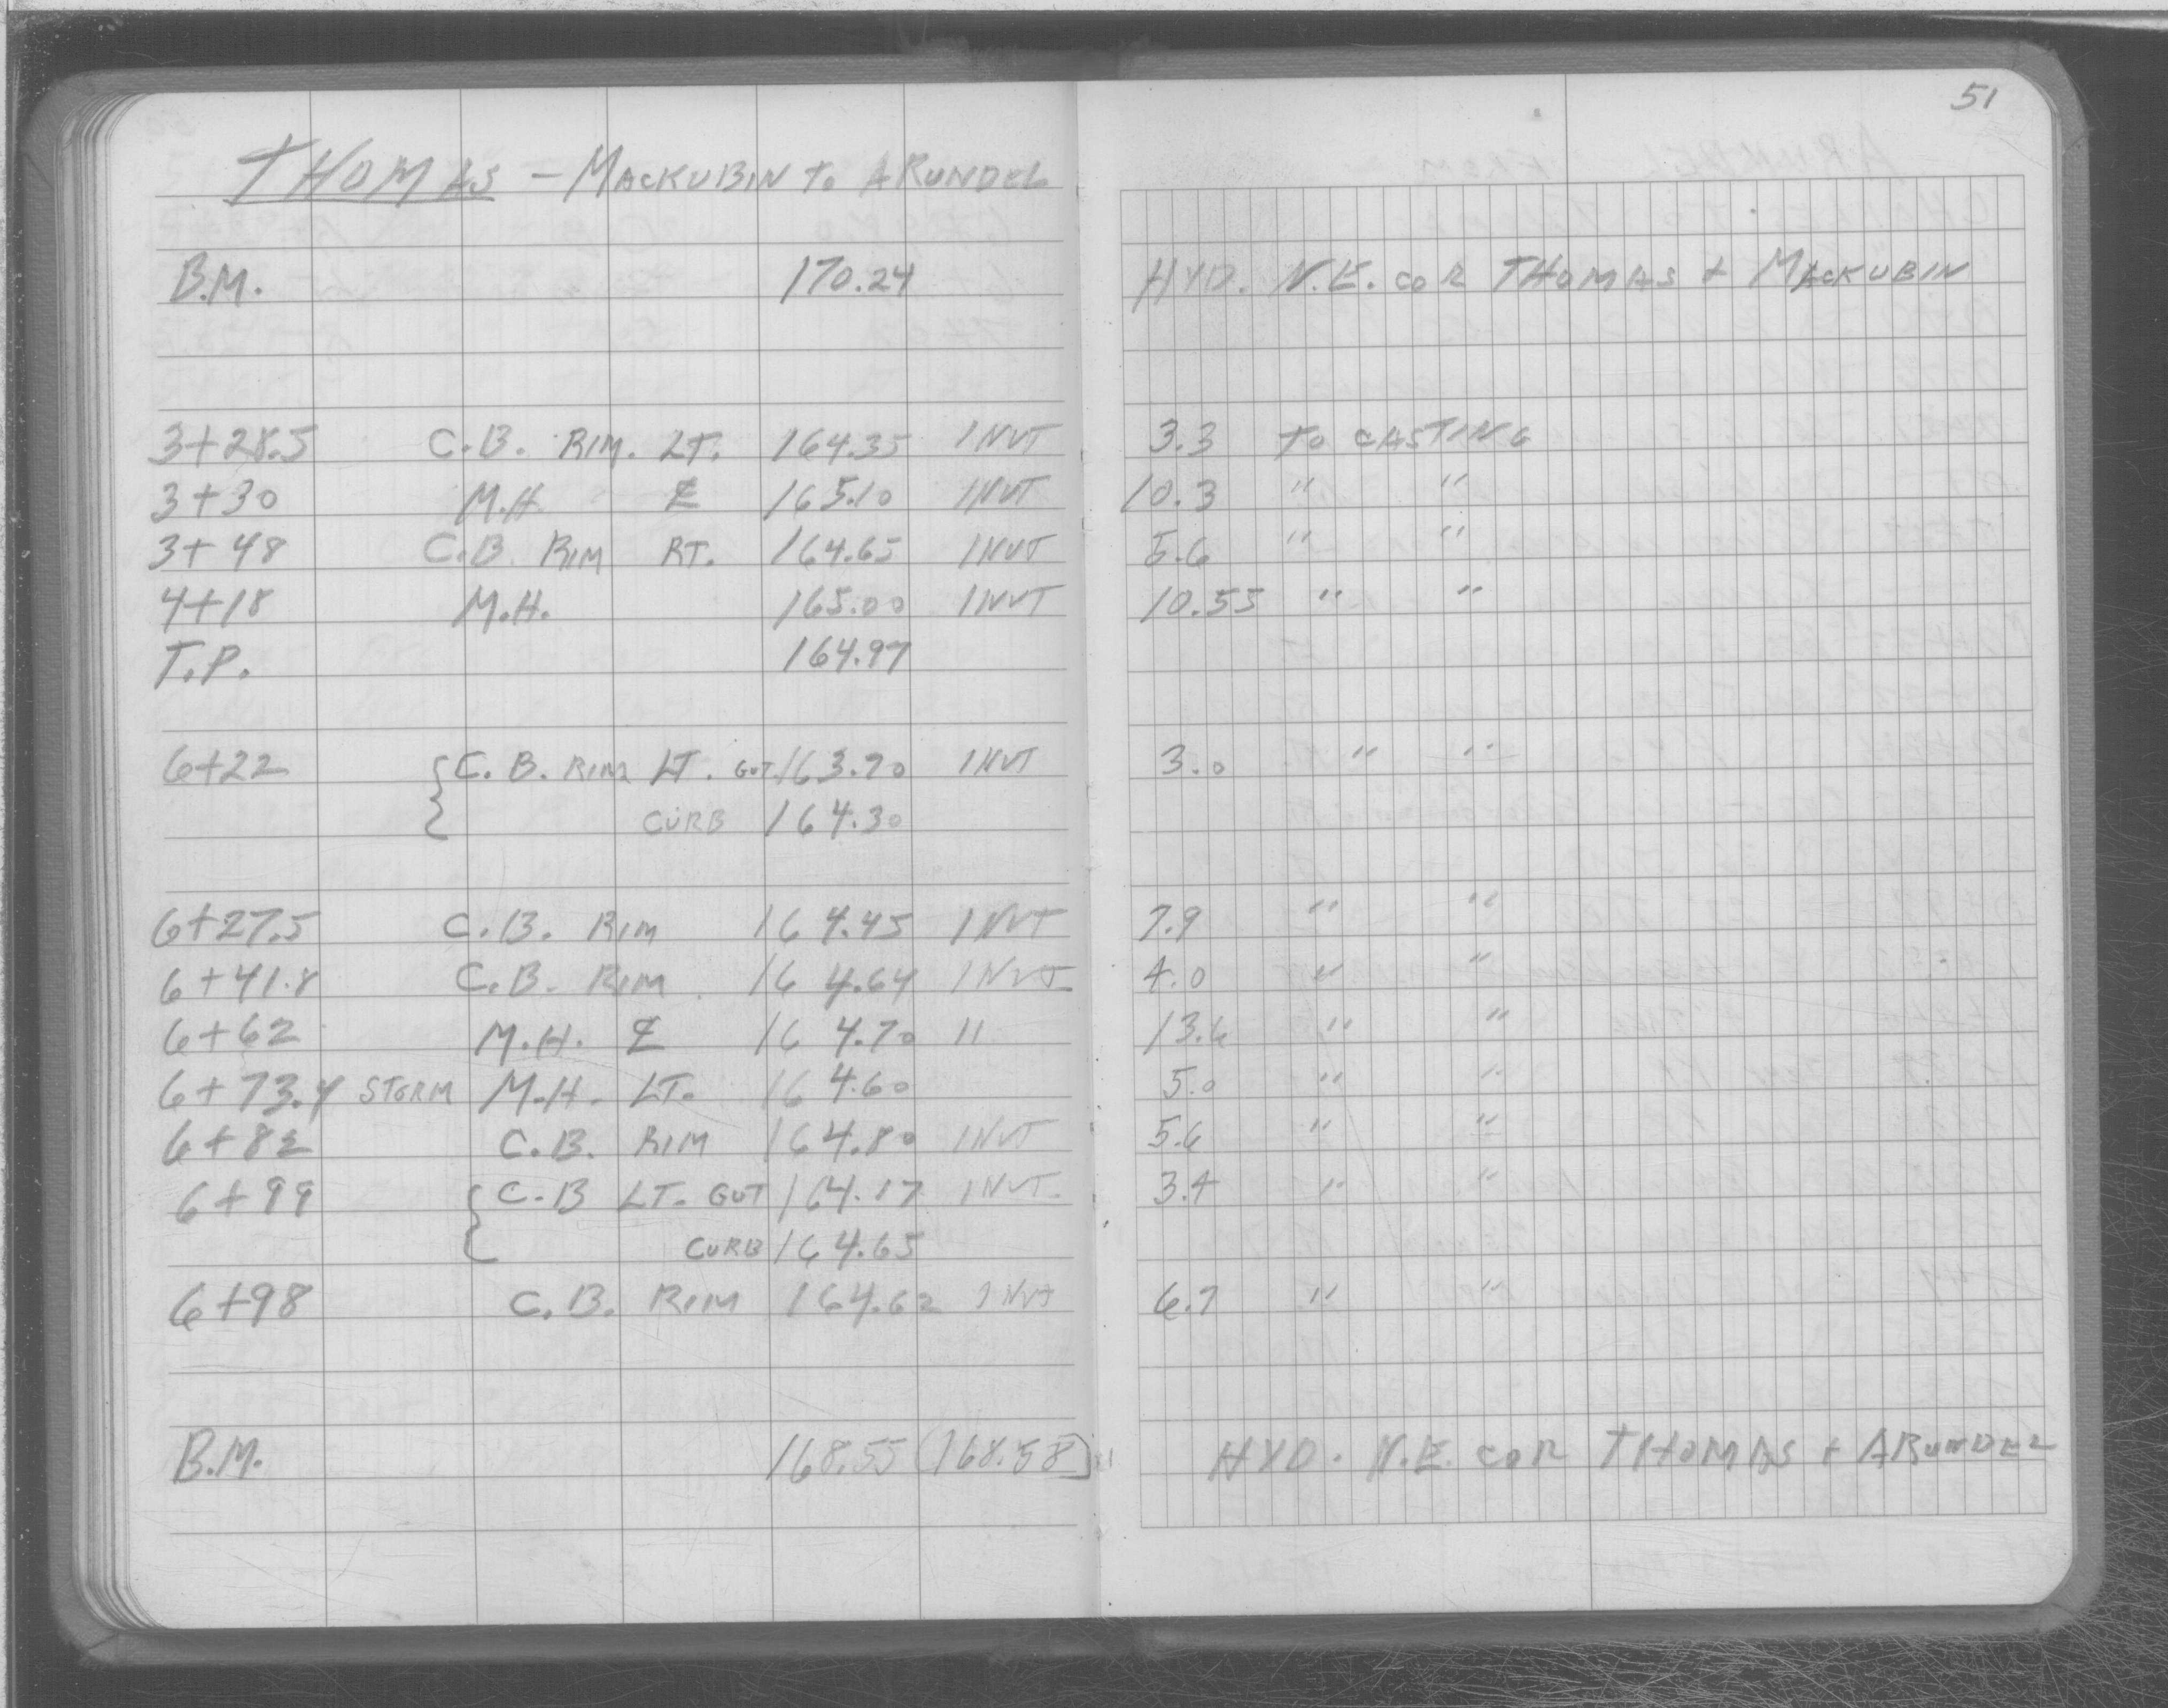 51
THOMAS - MACKUBIN TO ARUNDEL
B.M. 170.24 HYD. N.E. COR THOMAS + MACKUBIN
3+28.5 C.B. RIM. LT. 164.35 INVT 3.3 TO CASTING
3+30 M.H. ℄ 165.10 INVT 10.3 " "
3+48 C.B. RIM RT. 164.65 INVT 5.6 " "
4+18 M.H. 165.00 INVT 10.55 " "
T.P. 164.97
6+22 { C.B. RIM LT. GUT. 163.70 INVT 3.0 " "
CURB 164.30
6+27.5 C.B. RIM 164.45 INVT 7.9 " "
6+41.8 C.B. RIM 164.64 INVT 4.0 " "
6+62 M.H. ℄ 164.70 " 13.6 " "
6+73.4 STORM M.H. LT. 164.60 5.0 " "
6+82 C.B. RIM 164.80 INVT 5.6 " "
6+99 { C.B LT. GUT 164.17 INVT. 3.4 " "
CURB 164.65
6+98 C.B. RIM 164.62 INVT 6.7 " "
B.M. 168.55 (168.58) HYD. N.E. COR THOMAS + ARUNDEL